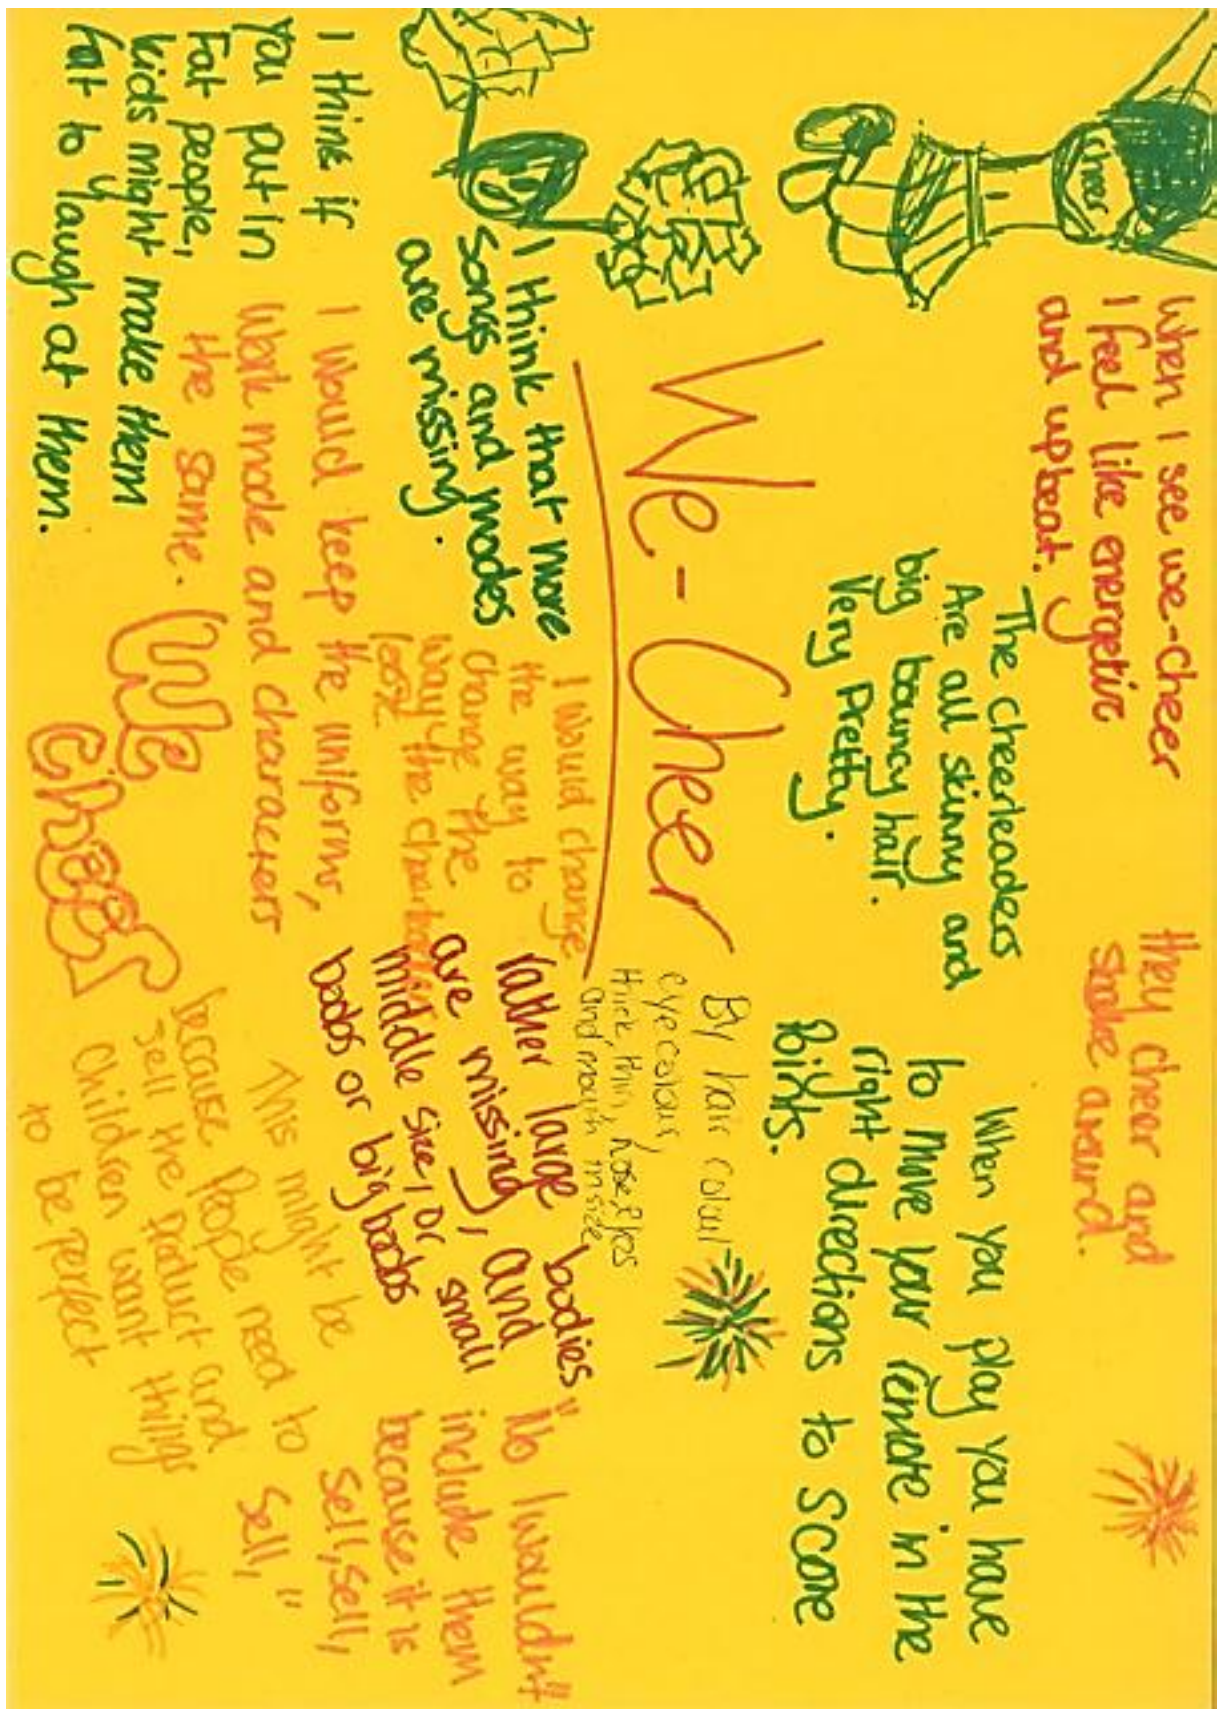 Cheer
When I see we-cheer
I feel like energetic
and upbeat.
They cheer and
shake around.
The cheerleaders
Are all skinny and
big bouncy hair.
Very Pretty.
When you play you have
to move your remote in the
right directions to score
Points.
We-Cheer
By hair colour
eye colour
thick, thin, nose, eyes
and mouth in size
I think that more
songs and modes
are missing.
I would change
the way to
change the
way the characters
rather large bodies
are missing, and
middle size, or small
boobs or big boobs
"No I wouldn't"
include them
because it is
sell, sell,
sell,"
I think if
you put in
Fat people,
kids might make them
fat to laugh at them.
I would keep the uniforms,
work mode and characters
the same.
We
Cheer
This might be
because People need to
sell the Product and
Children want things
to be perfect